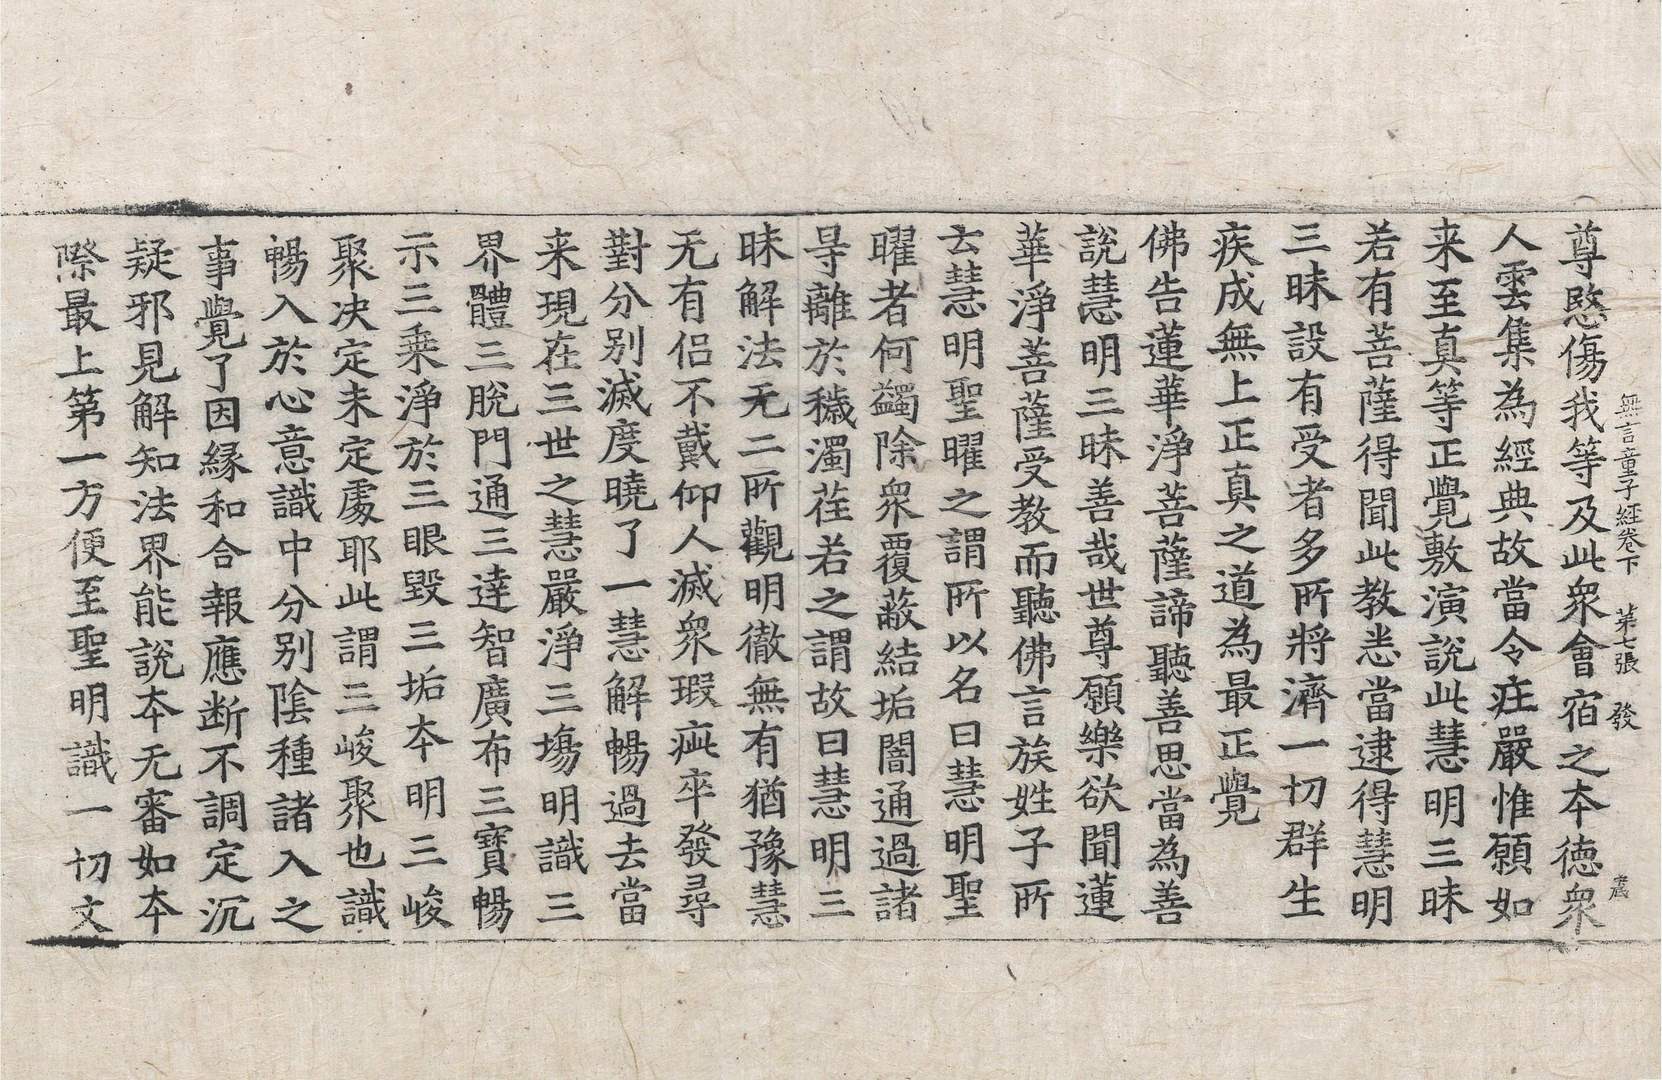 無言童子經卷下　第七張　發
尊愍傷我等及此眾會宿之夲德眾
人雲集為經典故當令疰嚴惟願如
来至真等正覺敷演說此慧明三昧
若有菩薩得聞此教悉當逮得慧明
三昧設有受者多所將濟一切群生
疾成無上正真之道為最正覺
佛告蓮華淨菩薩諦聽善思當為善
說慧明三昧善哉世尊願樂欲聞蓮
華淨菩薩受教而聽佛言族姓子所
云慧明聖曜之謂所以名曰慧明聖
曜者何蠲除眾覆蔽結垢闇通過諸
㝵離於穢濁荏若之謂故曰慧明三
昧解法无二所觀明徹無有猶豫慧
无有侶不戴仰人滅眾瑕疵卒發尋
對分别滅度曉了一慧解暢過去當
来現在三世之慧嚴淨三塲明識三
界體三脫門通三達智廣布三寶暢
示三乗淨於三眼毀三垢夲明三峻
聚决定未定處耶此謂三峻聚也識
暢入於心意識中分别陰種諸入之
事覺了因縁和合報應断不調定沉
疑邪見解知法界能說夲无審如夲
際最上第一方便至聖明識一切文